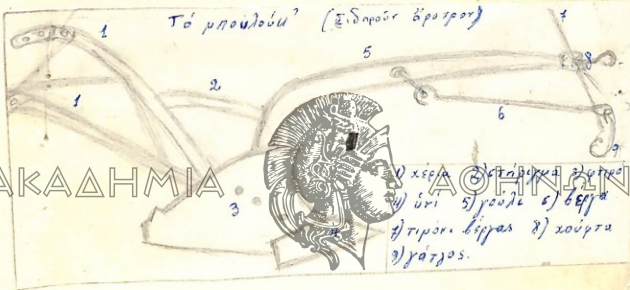 Τό μπουλούκ' (Σιδηρούν ἄροτρον)
1
1
2
5
7
8
6
9
3
4
ΑΚΑΔΗΜΙΑ ΑΘΗΝΩΝ
1) χερια 2) στήριγμα 3) φτερό
4) ὑνί 5) γούλα 6) βέργα
7) τιρόνι βέργας 8) χούφτα
9) γάτζος.